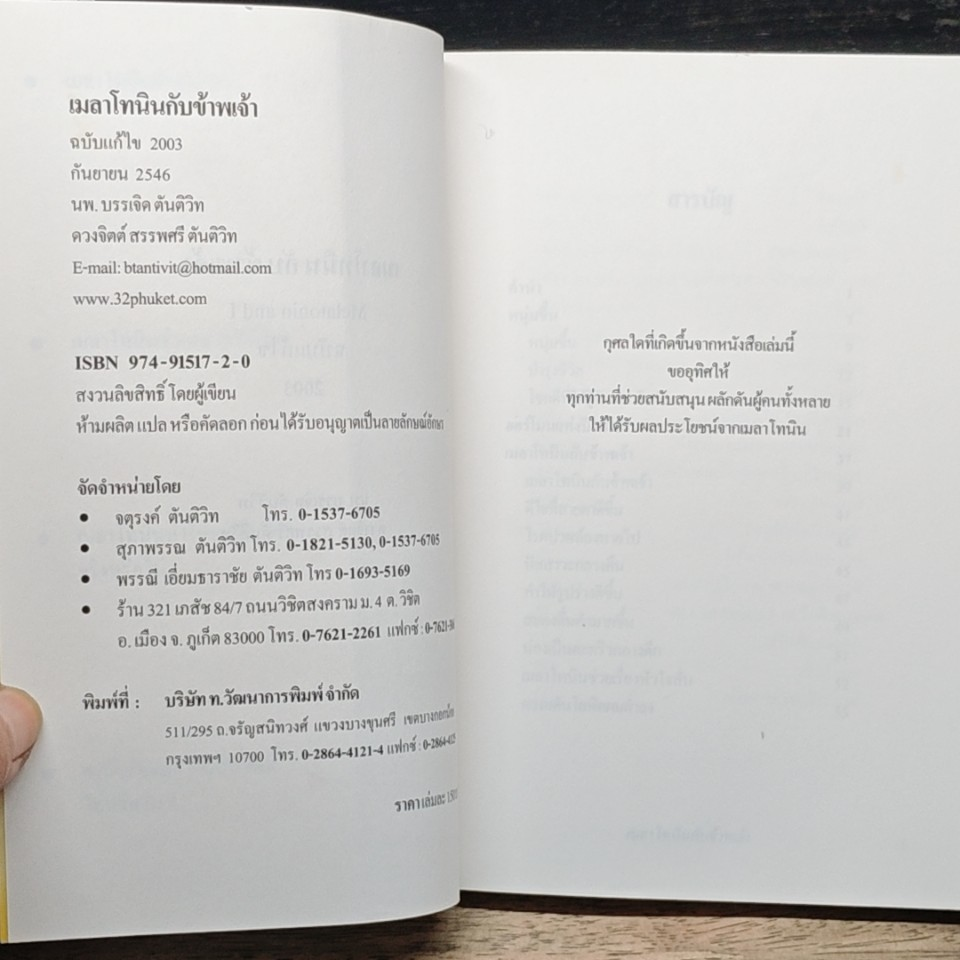 เมลาโทนินกับข้าพเจ้า
ฉบับแก้ไข 2003
กันยายน 2546
นพ. บรรเจิด ตันติวิท
ดวงจิตต์ สรรพศรี ตันติวิท
E-mail: btantivit@hotmail.com
www.32phuket.com
ISBN 974-91517-2-0
สงวนลิขสิทธิ์ โดยผู้เขียน
ห้ามผลิต แปล หรือคัดลอก ก่อนได้รับอนุญาตเป็นลายลักษณ์อักษร
จัดจำหน่ายโดย
● จตุรงค์ ตันติวิท โทร. 0-1537-6705
● สุภาพรรณ ตันติวิท โทร. 0-1821-5130, 0-1537-6705
● พรรณี เอี่ยมธาราชัย ตันติวิท โทร 0-1693-5169
● ร้าน 321 เภสัช 84/7 ถนนวิชิตสงคราม ม. 4 ต. วิชิต
อ. เมือง จ. ภูเก็ต 83000 โทร. 0-7621-2261 แฟกซ์ :
พิมพ์ที่ : บริษัท ท.วัฒนาการพิมพ์ จำกัด
511/295 ถ.จรัญสนิทวงศ์ แขวงบางขุนศรี
กรุงเทพฯ 10700 โทร. 0-2864-4121-4 แฟกซ์ :
ราคาเล่มละ
กุศลใดที่เกิดขึ้นจากหนังสือเล่มนี้
ขออุทิศให้
ทุกท่านที่ช่วยสนับสนุน ผลักดันผู้คนทั้งหลาย
ให้ได้รับผลประโยชน์จากเมลาโทนิน